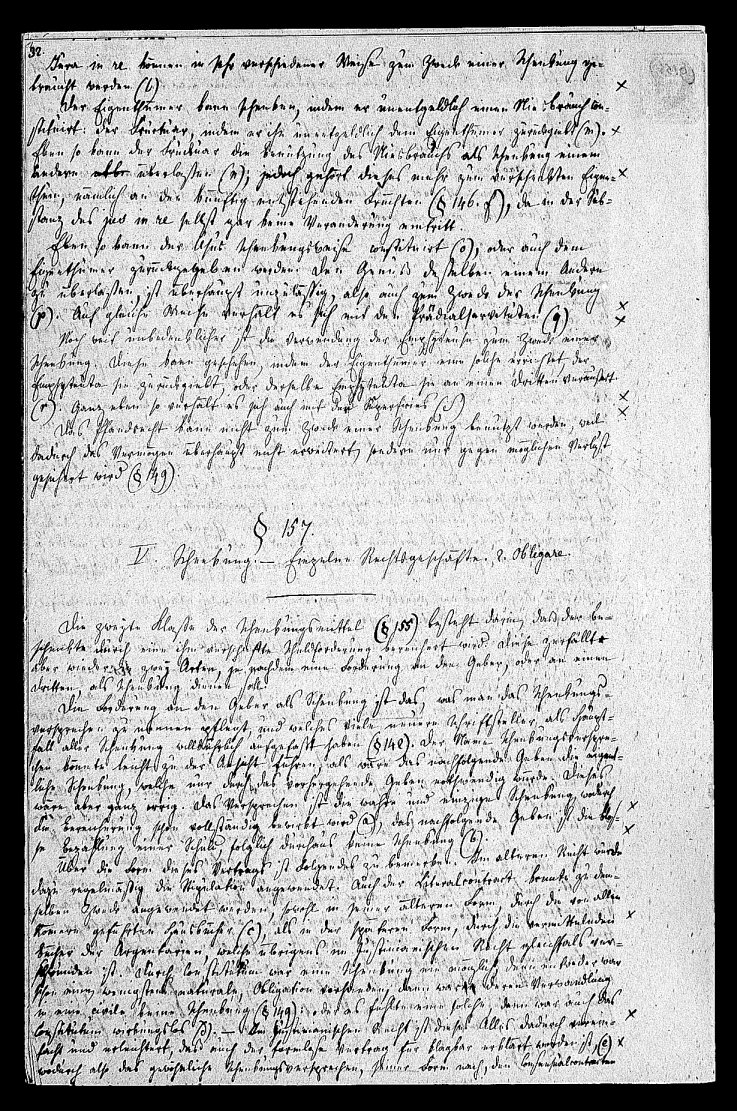 32.
Jura in re können in sehr verschiedener Weise zum Zweck einer Schenkung ge-
braucht werden (l).
Der Eigenthümer kann schenken, indem er unentgeldlich einen Niesbrauch con-
stituirt: der Fructuar, indem er ihn unentgeldlich dem Eigenthümer zurückgiebt (m).
Eben so kann der Fructuar die Benutzung des Niesbrauchs als Schenkung einem
Andern überlassen (n); jedoch gehört dieses mehr zum verschenkten Eigen-
thum, nämlich an den künftig entstehenden Früchten (§ 146. f), da in der Sub-
stanz des jus in re selbst gar keine Veränderung eintritt.
Eben so kann der Usus schenkungsweise constituirt (o), oder auch dem
Eigenthümer zurückgegeben werden. Den Genuß desselben einem Andern
zu überlassen, ist überhaupt unzulässig, also auch zum Zweck der Schenkung
(p). Auf gleiche Weise verhält es sich mit den Prädialservituten (q).
Noch weit unbedenklicher ist die Verwendung der Emphyteuse zum Zweck einer
Schenkung. Diese kann geschehen, indem der Eigenthümer eine solche errichtet, der
Emphyteuta sie zurückgiebt, oder derselbe Emphyteuta sie an einen Dritten veräußert
(r). Ganz eben so verhält es sich auch mit der Superficies (s).
Das Pfandrecht kann nicht zum Zweck einer Schenkung benutzt werden, weil
dadurch das Vermögen überhaupt nicht erweitert, sondern nur gegen möglichen Verlust
gesichert wird (§ 149).
§ 157.
IV. Schenkung. — Einzelne Rechtsgeschäfte. 2. Obligare.
Die zweyte Klasse der Schenkungsmittel (§ 155) besteht darin, daß der Be-
schenkte durch eine ihm verschaffte Schuldforderung bereichert wird. Diese zerfällt
aber wieder in zwey Arten, je nachdem eine Forderung an den Geber, oder an einen
Dritten, als Schenkung dienen soll.
Die Forderung an den Geber als Schenkung ist das, was man das Schenkungs-
versprechen zu nennen pflegt, und welches viele neuere Schriftsteller als Haupt-
fall aller Schenkung willkührlich aufgefaßt haben (§ 142). Der Name Schenkungsverspre-
chen könnte leicht zu der Ansicht führen, als wäre das nachfolgende Geben die eigent-
liche Schenkung, welche nur durch das vorhergehende Geben nothwendig würde. Dieses
wäre aber ganz irrig. Das Versprechen ist die wahre und einzige Schenkung, wodurch
die Bereicherung schon vollständig bewirkt wird (a), das nachfolgende Geben ist die blo-
ße Bezahlung einer Schuld, folglich durchaus keine Schenkung (b).
Über die Form dieses Vertrags ist Folgendes zu bemerken. Im älteren Recht wurde
dazu regelmäßig die Stipulation angewendet. Auch der Literalcontract konnte zu dem-
selben Zweck angewendet werden, sowohl in seiner älteren Form, durch die von allen
Römern geführten Hausbücher (c), als in der späteren Form, durch die vermittelnden
Bücher der Argentarien, welche übrigens im Justinianischen Recht gleichfalls ver-
schwunden ist. Durch Constitutum war eine Schenkung nie möglich, denn entweder war
schon eine, wenigstens naturale, Obligation vorhanden, dann war deren Verwandlung
in eine civile keine Schenkung (§ 149): oder es fehlte eine solche, dann war auch das
Constitutum wirkungslos (d). — Im Justinianischen Recht ist dieses Alles dadurch verein-
facht und erleichtert, daß auch der formlose Vertrag für klagbar erklärt worden ist (e)
wodurch also das gewöhnliche Schenkungsversprechen, seiner Form nach, den Consensualcontracten